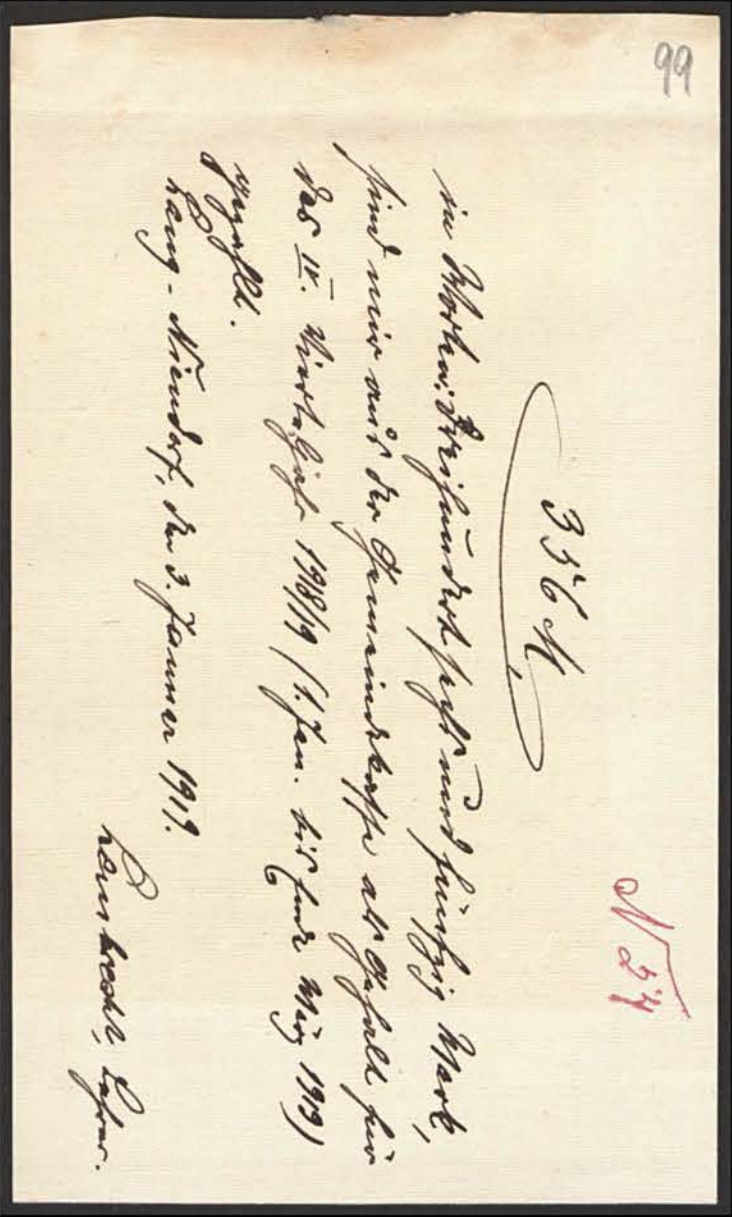 99
N 27
356 M
in Worten: Dreihundert sechs und fünfzig Mark,
sind mir aus der Gemeindekasse als Gehalt für
das IV. Vierteljahr 1918/19 (1. Jan. bis Ende März 1919)
gezahlt.
Lang-Niendorf, den 3. Januar 1919.
Lembrecht, Lehrer.